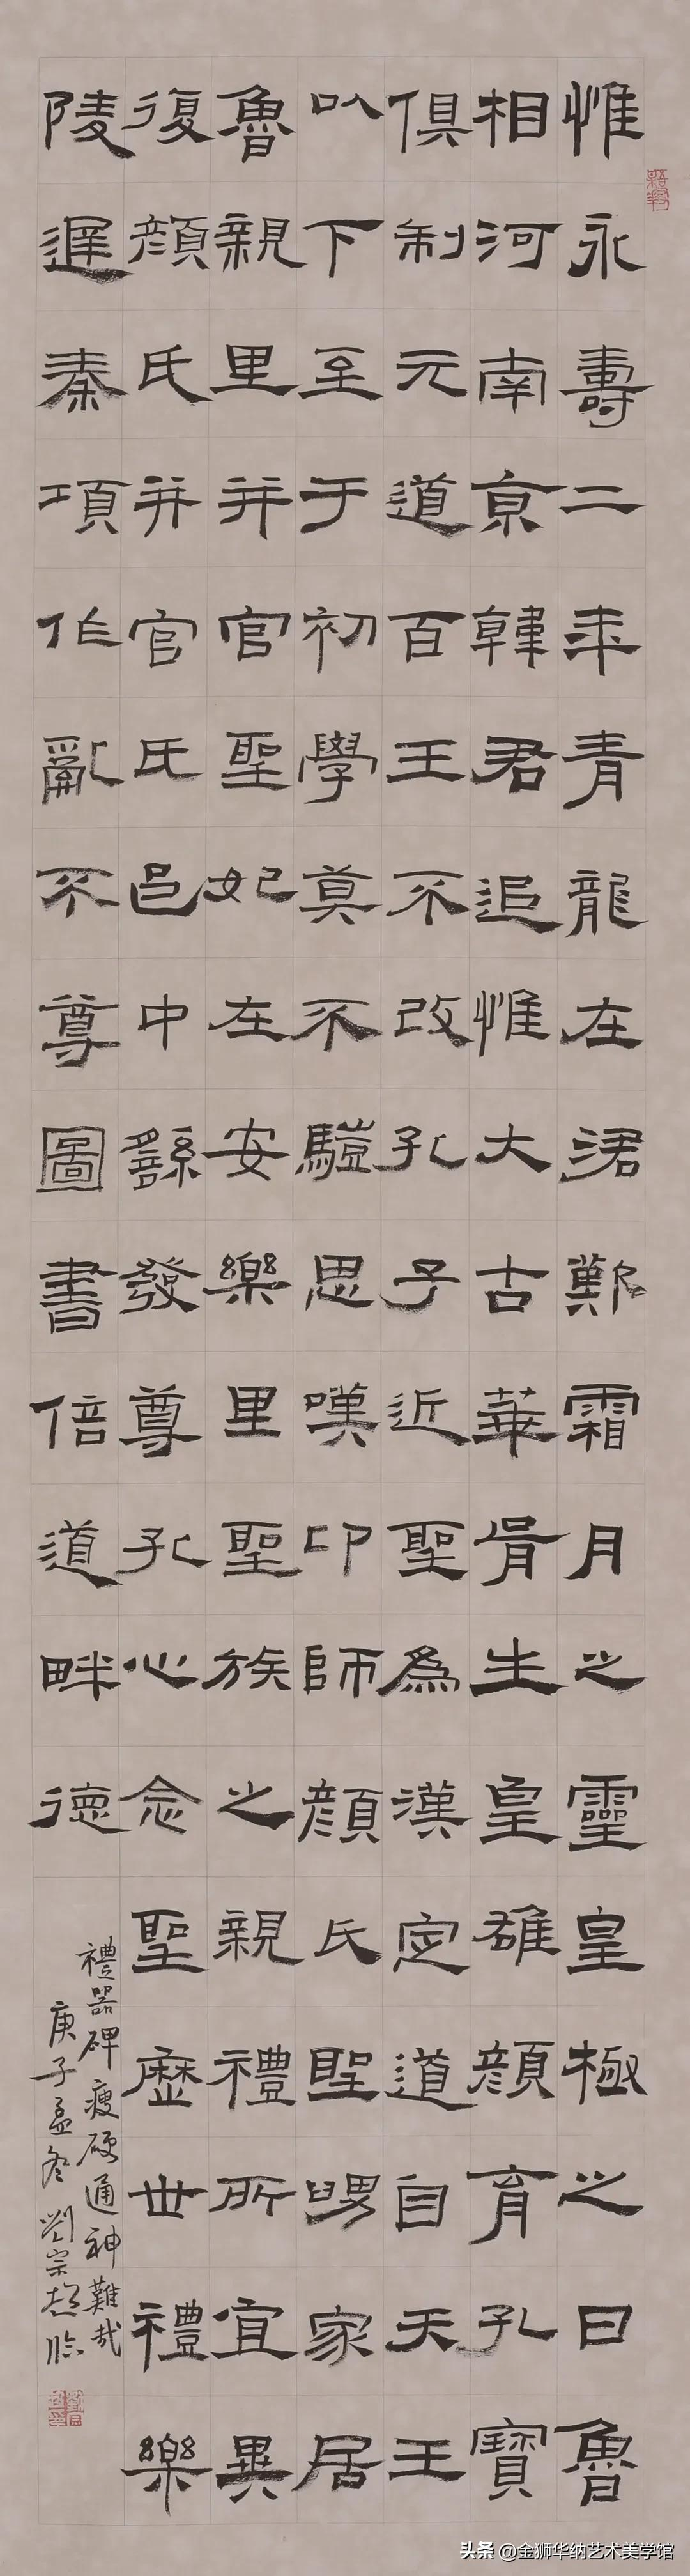 惟永壽二年青龍在涒歎霜月之靈皇極之日魯
相河南京韓君追惟大古華胥生皇雄顏育孔寶
俱制元道百王不改孔子近聖為漢定道自天王
以下至于初學莫不驥思嘆卬師顏氏聖舅家居
魯親里并官聖妃在安樂里聖族之親禮所宜異
復顏氏并官氏邑中繇發尊孔心念聖歷世禮樂
陵遲秦項作亂不尊圖書倍道畔德
禮器碑瘦硬通神難哉
庚子孟冬劉宗超臨
头条 @金狮华纳艺术美学馆